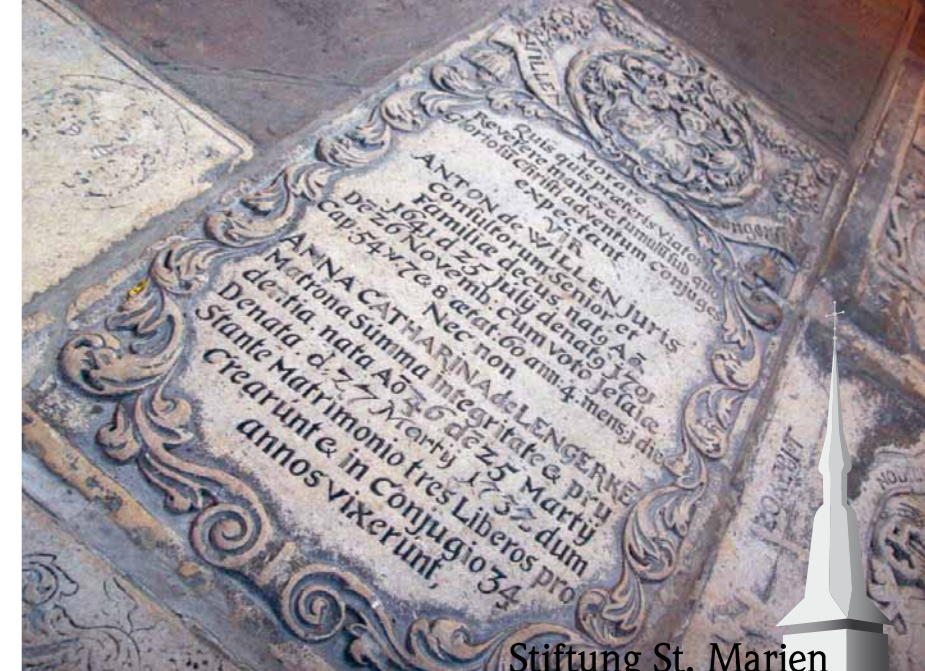 WILLEN
Morare
Quis quis praeteris viator
Revefere manes e tumuli sub quo
Gloriosū christi adventum conjuges
expectant
VIR
ANTON de WILLEN juris
Consultorum Senior et
Familiae decus, nat9 Aō
1641 d 25 July denat9 1701
D 26 Novemb. Cum voto Jesaiae
Cap: 54 v 7 e 8 aetat. 60 ann. 4. mens. j die
Nec non
ANNA CATHARINA de LENGERKE
Matrona Summa integritate & pru
dentia. nata Aō 36 de 25 Marty
Denata. d. 27 Marty 1737. dum
Stante Matrimonio tres Liberos pro
Crearunt & in Conjugio 34
annos vixerunt,
Stiftung St. Marien